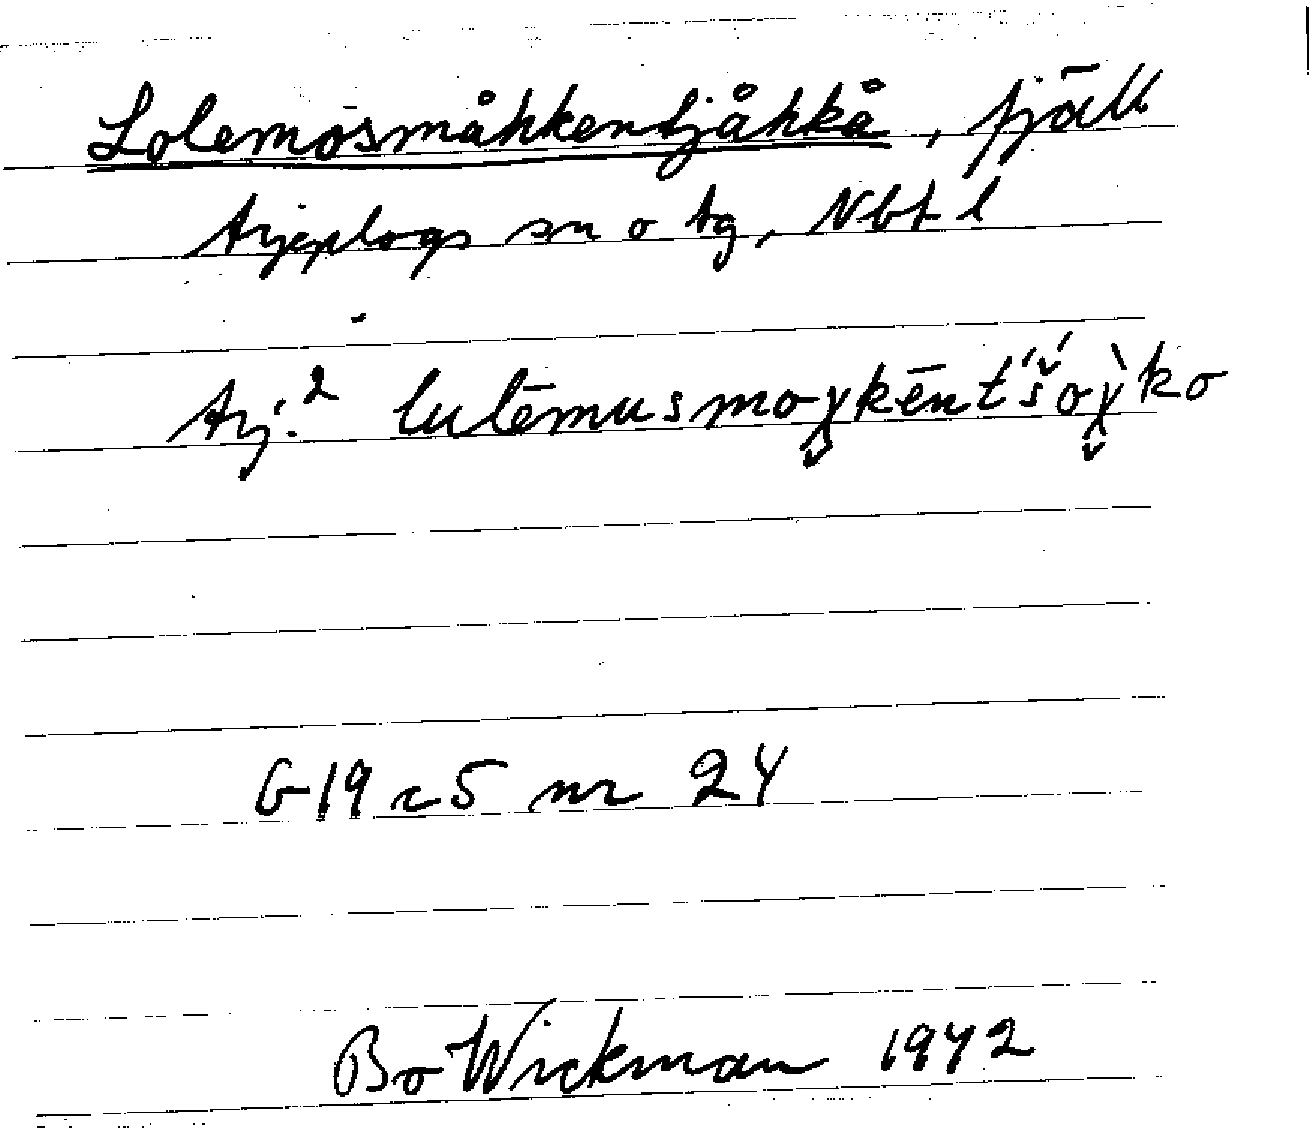 Lolemosmåhkentjåhkå, fjäll
Arjeplogs sn o tg, Nbt l
Arj.² lulēmusmoχ̬kēnt́š́oχ̬̀ko
G 19 c 5 nr 24
Bo Wickman 1942